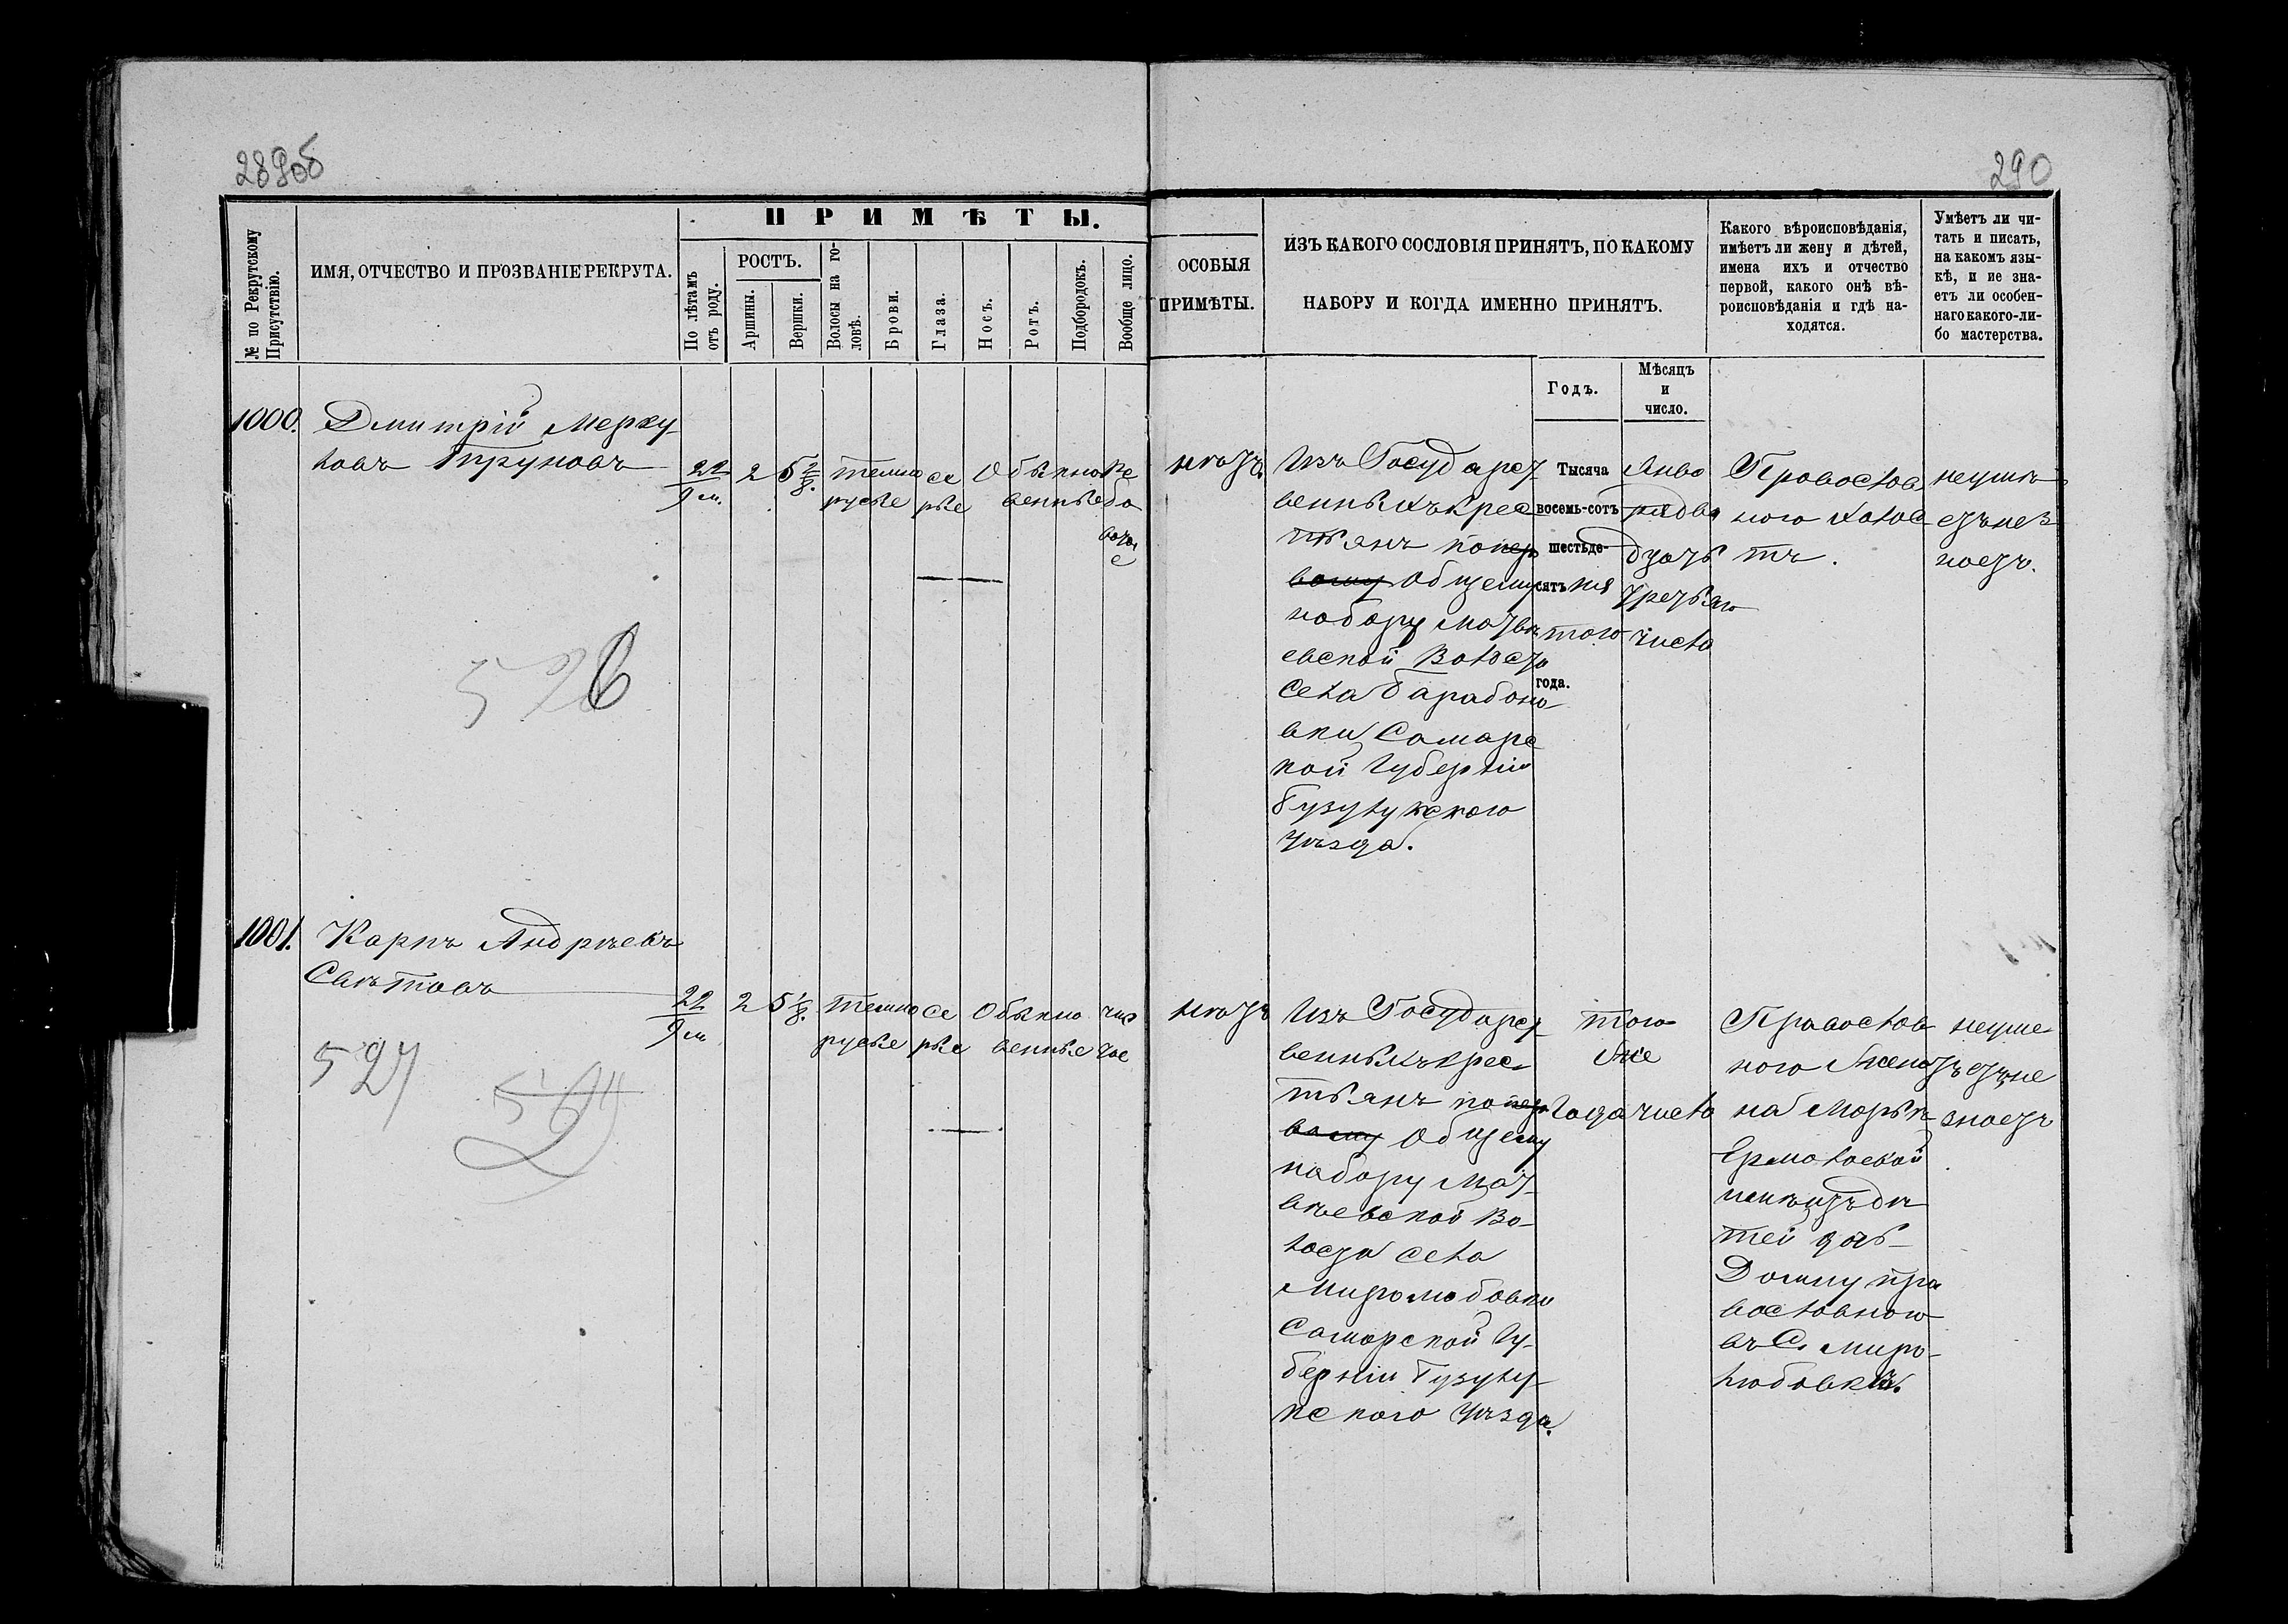 289об
290
ПРИМѢТЫ.
№ по Рекрутскому Присутствію.
ИМЯ, ОТЧЕСТВО И ПРОЗВАНІЕ РЕКРУТА.
По лѣтамъ отъ роду.
РОСТЪ.
Аршины.
Вершки.
Волосы на головѣ.
Брови.
Глаза.
Носъ.
Ротъ.
Подбородокъ.
Вообще лицо.
ОСОБЫЯ
ПРИМѢТЫ.
ИЗЪ КАКОГО СОСЛОВІЯ ПРИНЯТЪ, ПО КАКОМУ
НАБОРУ И КОГДА ИМЕННО ПРИНЯТЪ.
Какого вѣроисповѣданія,
имѣетъ ли жену и дѣтей,
имена ихъ и отчество
первой, какого онѣ вѣ-
роисповѣданія и гдѣ на-
ходятся.
Умѣетъ ли чи-
тать и писать,
на какомъ язы-
кѣ, и не зна-
етъ ли особен-
наго какого-ли-
бо мастерства.
Годъ.
Мѣсяцъ
и
число.
1000.
Дмитрій Мерку-
ловъ Труновъ
22
9 м.
2
5 2/8.
темно
русые
се
рые
Обыкно
венные
нѣтъ
Изъ Государст-
венныхъ крес
тьянъ по пер
вому Общему
набору Матвѣ
евской Волости
села Барабано
вки Самарс
кой Губерніи
Бузулукскаго
уѣзда.
Тысяча
восемь-сотъ
шестьде-
сятъ пя
того
года.
Янва
ря два
дцать
третьяго
числа
Православ
ного холос
тъ.
неумѣ
етъ нез
наетъ.
526
1001.
Карпъ Андреевъ
Свѣтовъ
22
9 м
2
5 1/8.
темно
русые
се
рые
Обыкно
венные
чис
тое
нѣтъ
Изъ Государст-
венныхъ крес-
тьянъ по пер
вому Общему
набору Мат-
вѣевской Во-
лости села
Миролюбовки
Самарской Гу-
берніи Бузулу-
кскаго уѣзда.
того
же
Года числа
Православ-
ного Женатъ
на Марьѣ
Ермолаевой
имѣетъ дѣ
тей дочь
Домну пра
вославною
въ С. Миро-
любовкѣ.
неуме
етъ, не
знаетъ
527